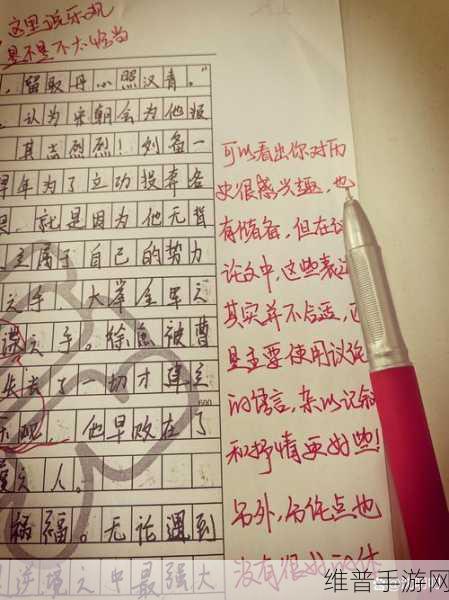 这里说乐观
是不是不太恰当
，留取丹心照汉青。”
，认为宋朝会为他报
其志烈烈！刘备一
早年为了立功投奔各
果，就是因为他无暂
主属于自己的势力
之手，大举全军之
谋之手。徐庶被曹
长丧了一切才
600
乐观，他早败在了
人。
祸福。无论遇到
逆境之中最强大
可以看出你对历
史很感兴趣，也
有储备，但在议
论文中，这些表达
其实并不合适，还
是主要使用议论
的语言，杂以记叙
和抒情要好些！
另外，合作点也
没有很好的体
维普手游网